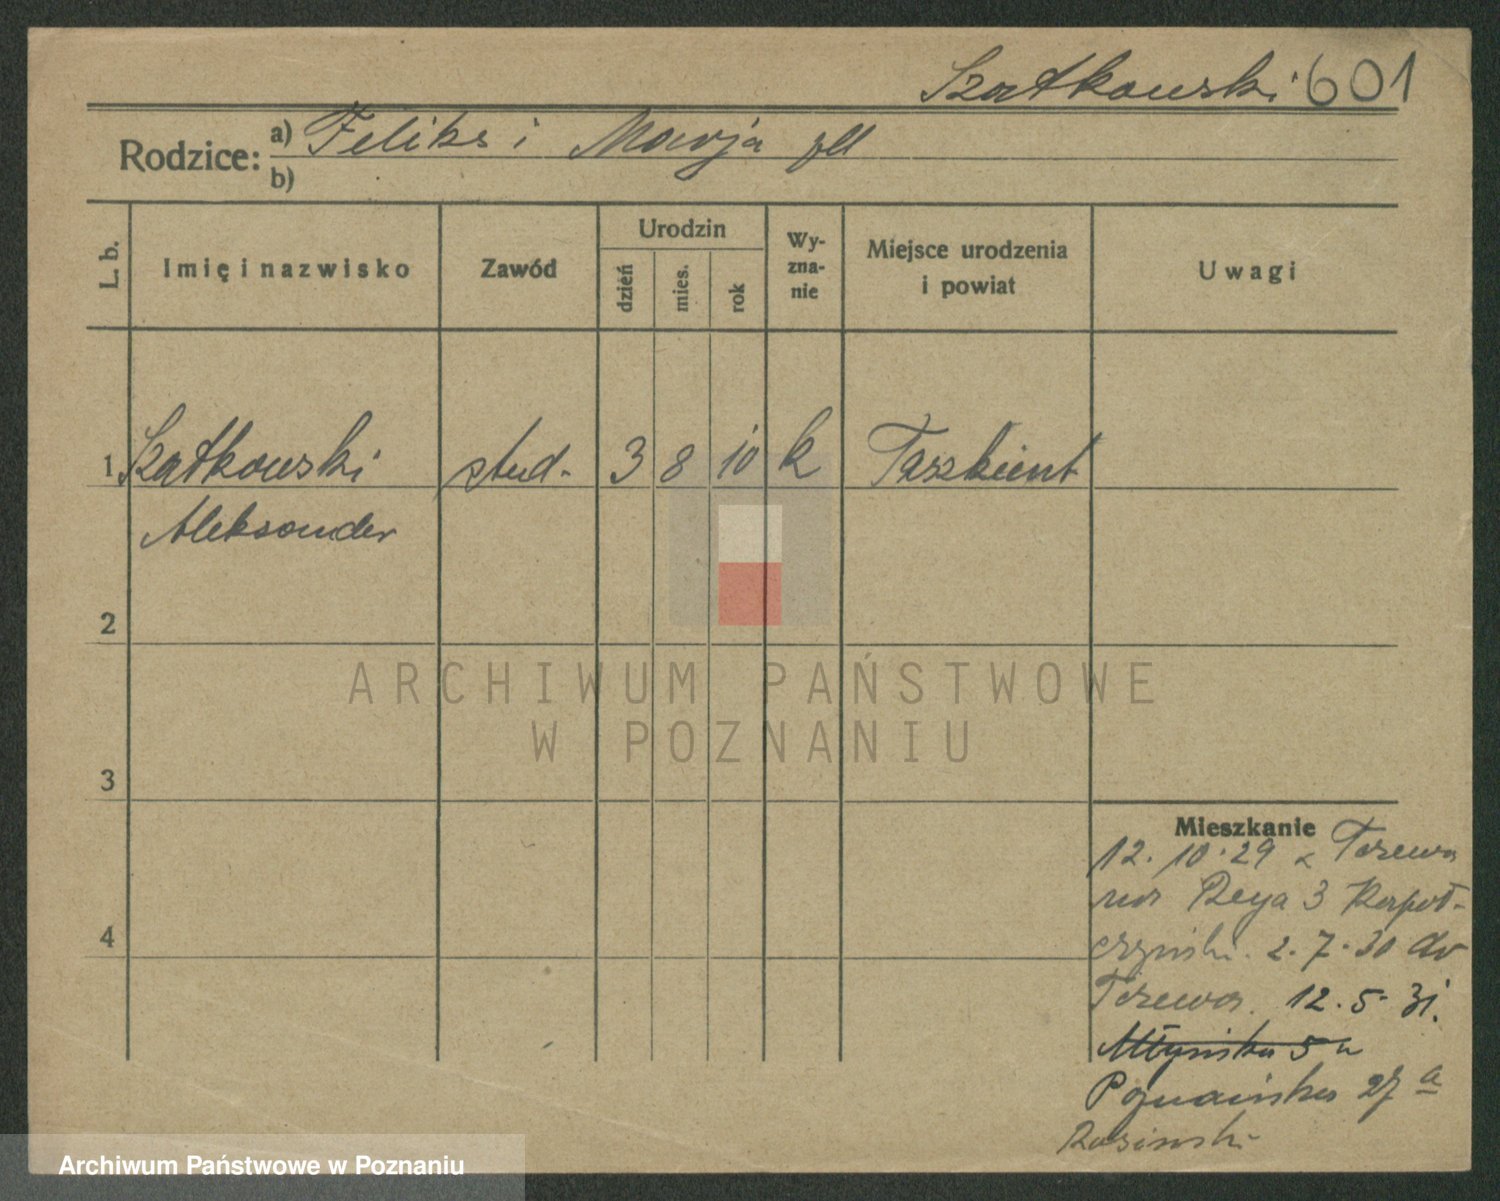 Szatkowski 601
Rodzice: a) Feliks i Marja
b)
L. b. Imię i nazwisko Zawód Urodzin dzień mies. rok Wy-zna-nie Miejsce urodzenia i powiat Uwagi
1 Szatkowski stud. 3 8 10 k Taszkient
Aleksander
2
ARCHIWUM PAŃSTWOWE
W POZNANIU
3
Mieszkanie
12. 10. 29 z Tczewa
na Reya 3
2. 7. 30 do
Tczewa. 12. 5. 31.
4
Młyńska 5
Poznańska 27 a
Archiwum Państwowe w Poznaniu